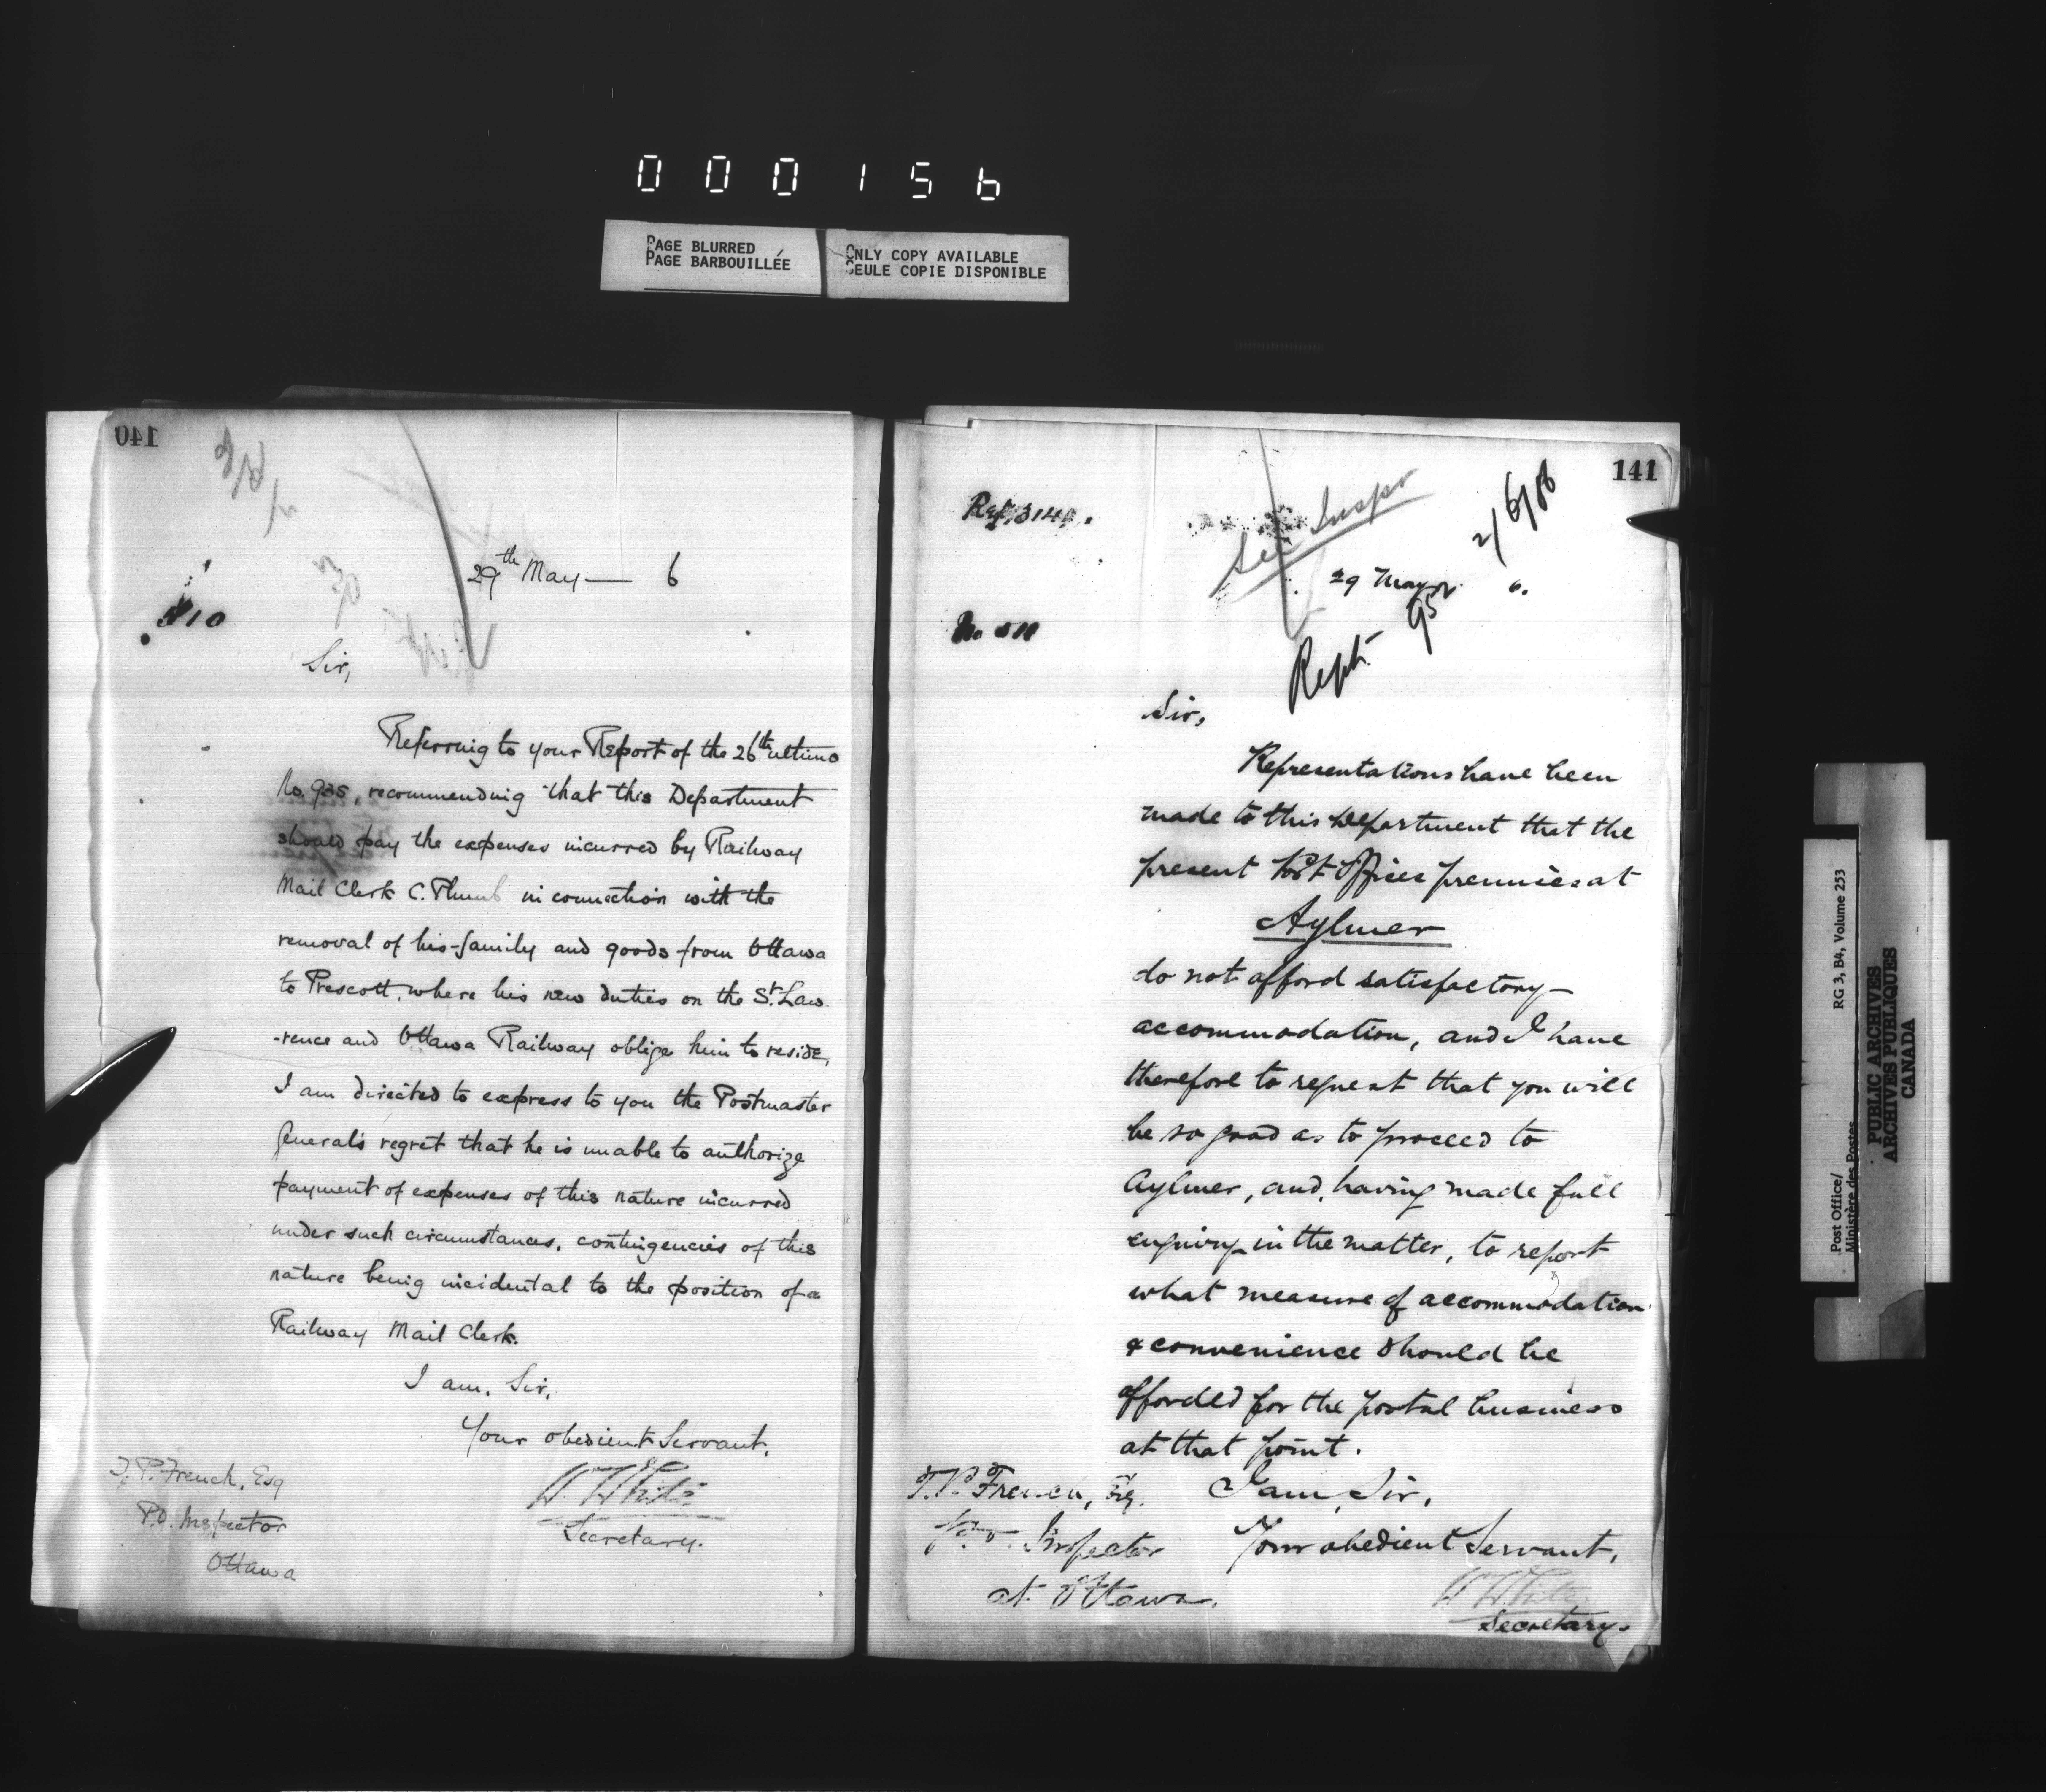 000156
PAGE BLURRED
PAGE BARBOUILLÉE
ONLY COPY AVAILABLE
SEULE COPIE DISPONIBLE
140
29th May — 6
510
Sir,
Referring to your Report of the 26th ultimo
No. 925, recommending that this Department
should pay the expenses incurred by Railway
Mail Clerk C. Plumb in connection with the
removal of his family and goods from Ottawa
to Prescott, where his new duties on the St. Law
-rence and Ottawa Railway oblige him to reside,
I am directed to express to you the Postmaster
General's regret that he is unable to authorize
payment of expenses of this nature incurred
under such circumstances, contingencies of this
nature being incidental to the position of a
Railway Mail Clerk.
I am, Sir,
Your obedient Servant,
W White
Secretary.
T. P. French, Esq
P.O. Inspector
Ottawa
141
Ref.
See Inspr
2/6/86
29 May
6.
No 511
Rept. 952
Sir,
Representations have been
made to this Department that the
present Post Office premises at
Aylmer
do not afford satisfactory
accommodation, and I have
therefore to request that you will
be so good as to proceed to
Aylmer, and, having made full
enquiry in the matter, to report
what measure of accommodation
& convenience should be
afforded for the postal business
at that point.
I am, Sir,
Your obedient Servant,
W White
Secretary.
T. P. French, Esq.
P.O. Inspector
at Ottawa.
Post Office/
Ministère des Postes
RG 3, B4, Volume 253
PUBLIC ARCHIVES
ARCHIVES PUBLIQUES
CANADA